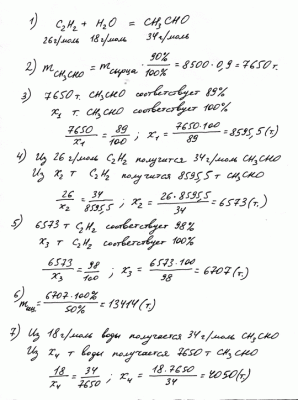 1) C₂H₂ + H₂O = CH₃CHO
26 г/моль 18 г/моль 34 г/моль
2) m CH₃CHO = m сырца · 90%/100% = 8500 · 0,9 = 7650 т.
3) 7650 т. CH₃CHO соответствует 89%
x₁ т. CH₃CHO соответствует 100%
7650/x₁ = 89/100 ; x₁ = 7650·100/89 = 8595,5 (т)
4) Из 26 г/моль C₂H₂ получится 34 г/моль CH₃CHO
Из x₂ т C₂H₂ получится 8595,5 т CH₃CHO
26/x₂ = 34/8595,5 ; x₂ = 26·8595,5/34 = 6573 (т.)
5) 6573 т C₂H₂ соответствует 98%
x₃ т C₂H₂ соответствует 100%
6573/x₃ = 98/100 ; x₃ = 6573·100/98 = 6707 (т)
6) = 6707·100%/50% = 13414 (т)
7) Из 18 г/моль воды получается 34 г/моль CH₃CHO
Из x₄ т воды получается 7650 т CH₃CHO
18/x₄ = 34/7650 ; x₄ = 18·7650/34 = 4050 (т)